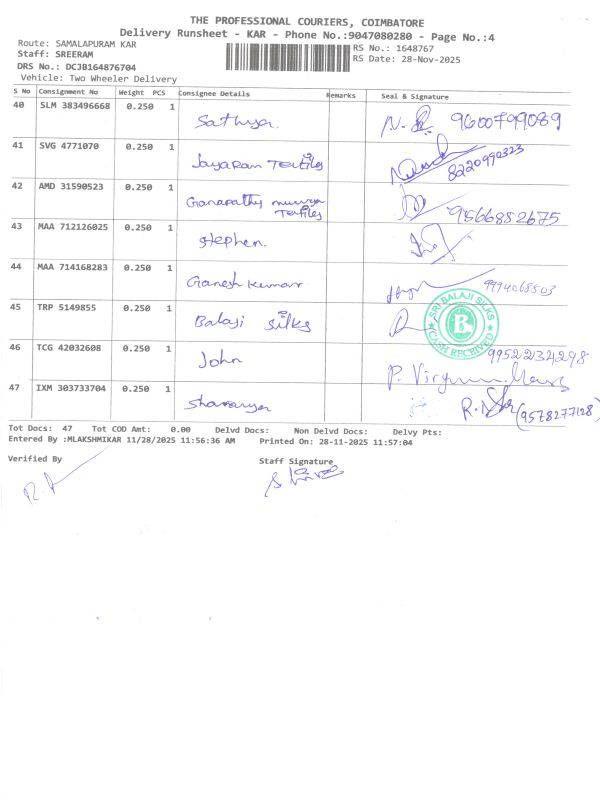 THE PROFESSIONAL COURIERS, COIMBATORE
Delivery Runsheet - KAR - Phone No.:9047080280 - Page No.:4
Route: SAMALAPURAM KAR RS No.: 1648767
Staff: SREERAM RS Date: 28-Nov-2025
DRS No.: DCJB164876704
Vehicle: Two Wheeler Delivery
S No Consignment No Weight PCS Consignee Details Remarks Seal & Signature
40 SLM 383496668 0.250 1 Sathya. 9600799089
41 SVG 4771070 0.250 1 Jayaram Textiles 8220990323
42 AMD 31590523 0.250 1 Ganapathy
Textiles 9566882675
43 MAA 712126025 0.250 1 Stephen.
44 MAA 714168283 0.250 1 Ganesh kumar 9994068503
45 TRP 5149855 0.250 1 Balaji Silks
SRI BALAJI SILKS
B
CASH RECEIVED
46 TCG 42032608 0.250 1 John 9952234298
47 IXM 303733704 0.250 1 (9578277128)
Tot Docs: 47 Tot COD Amt: 0.00 Delvd Docs: Non Delvd Docs: Delvy Pts:
Entered By :MLAKSHMIKAR 11/28/2025 11:56:36 AM Printed On: 28-11-2025 11:57:04
Verified By Staff Signature